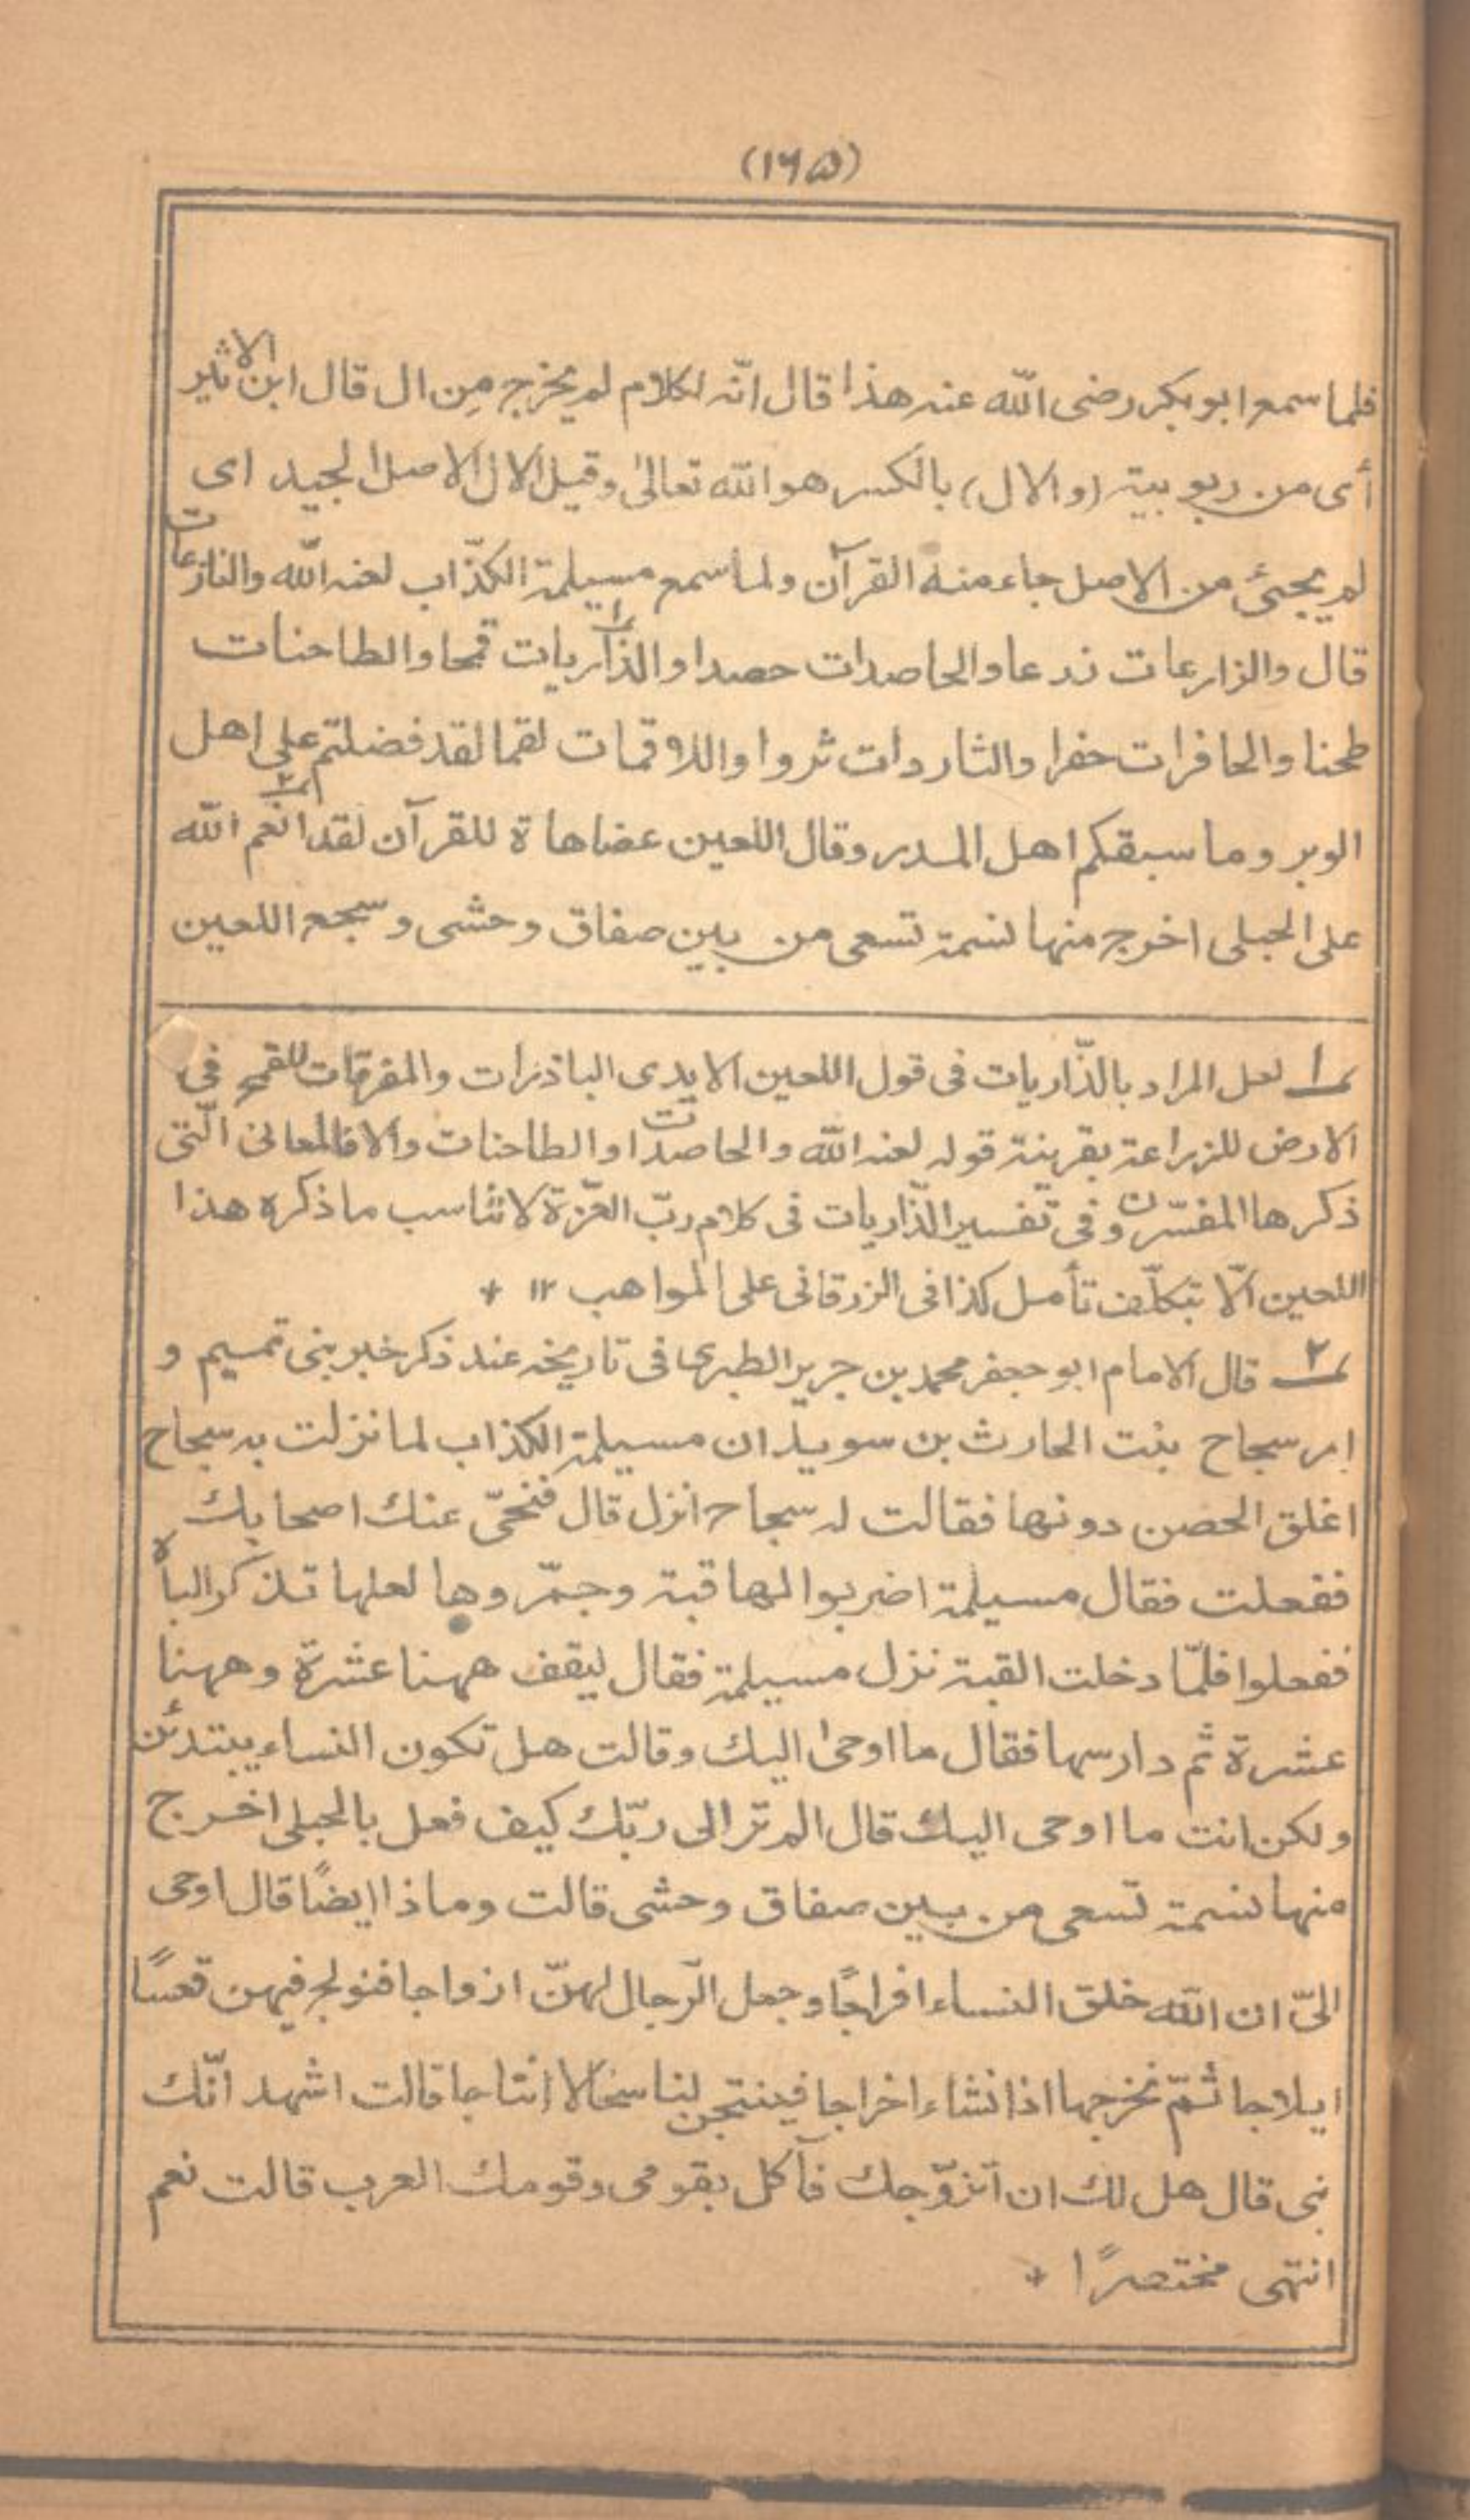 (١٦٥)
فلما سمع ابو بكر رضى الله عنه هذا قال انّه لكلام لم يخرج مِن ال قال ابن الاثير
أى من ربوبية (والال) بالكسر هو الله تعالىٰ وقيل الال الاصل الجيد اى
لم يجئ من الاصل جاء منه القرآن ولما سمع مسيلمة الكذّاب لعنه الله والنازعات
قال والزارعات زرعا والحاصدات حصدا والذاريات ١ قمحا والطاحنات
طحنا والحافرات حفرا والثاردات ثروا واللاقمات لقما لقد فضلتم على اهل
الوبر وما سبقكم اهل المدر وقال اللعين عضاهاة للقرآن لقد انعم ٢ الله
على الحبلى اخرج منها نسمة تسعى من بين صفاق وحشى وسجع اللعين
١ لعل المراد بالذّاريات فى قول اللعين الايدى الباذرات والمفرقات للقمح فى
الارض للزراعة بقرينة قوله لعنه الله والحاصدات والطاحنات والا فالمعانى الّتى
ذكرها المفسّرون فى تفسير الذّاريات فى كلام ربّ العزّة لا تناسب ما ذكره هذا
اللعين الّا بتكلّف تأمل كذا فى الزرقانى على المواهب ١٢ +
٢ قال الامام ابو جعفر محمد بن جرير الطبرى فى تاريخه عند ذكر خبر بنى تميم و
امر سجاح بنت الحارث بن سويد ان مسيلمة الكذاب لما نزلت به سجاح
اغلق الحصن دونها فقالت له سجاح انزل قال فنحّى عنك اصحابك
ففعلت فقال مسيلمة اضربوا لها قبة وجمّروها لعلها تذكر الباه
ففعلوا فلمّا دخلت القبة نزل مسيلمة فقال ليقف ههنا عشرة وههنا
عشرة ثم دارسها فقال ما اوحىٰ اليك وقالت هل تكون النساء يبتدئن
ولكن انت ما اوحى اليك قال الم تر الى ربّك كيف فعل بالحبلى اخرج
منها نسمة تسعى من بين صفاق وحشى قالت وماذا ايضًا قال اوحى
الىّ ان الله خلق النساء افراجًا وجعل الرّجال لهنّ ازواجا فنولج فيهن قعسًا
ايلاجا ثمّ نخرجها اذا نشاء اخراجا فينتجن لنا سخالا انتاجا قالت اشهد انّك
نبى قال هل لك ان اتزوّجك فآكل بقومى وقومك العرب قالت نعم
انتهى مختصرًا +